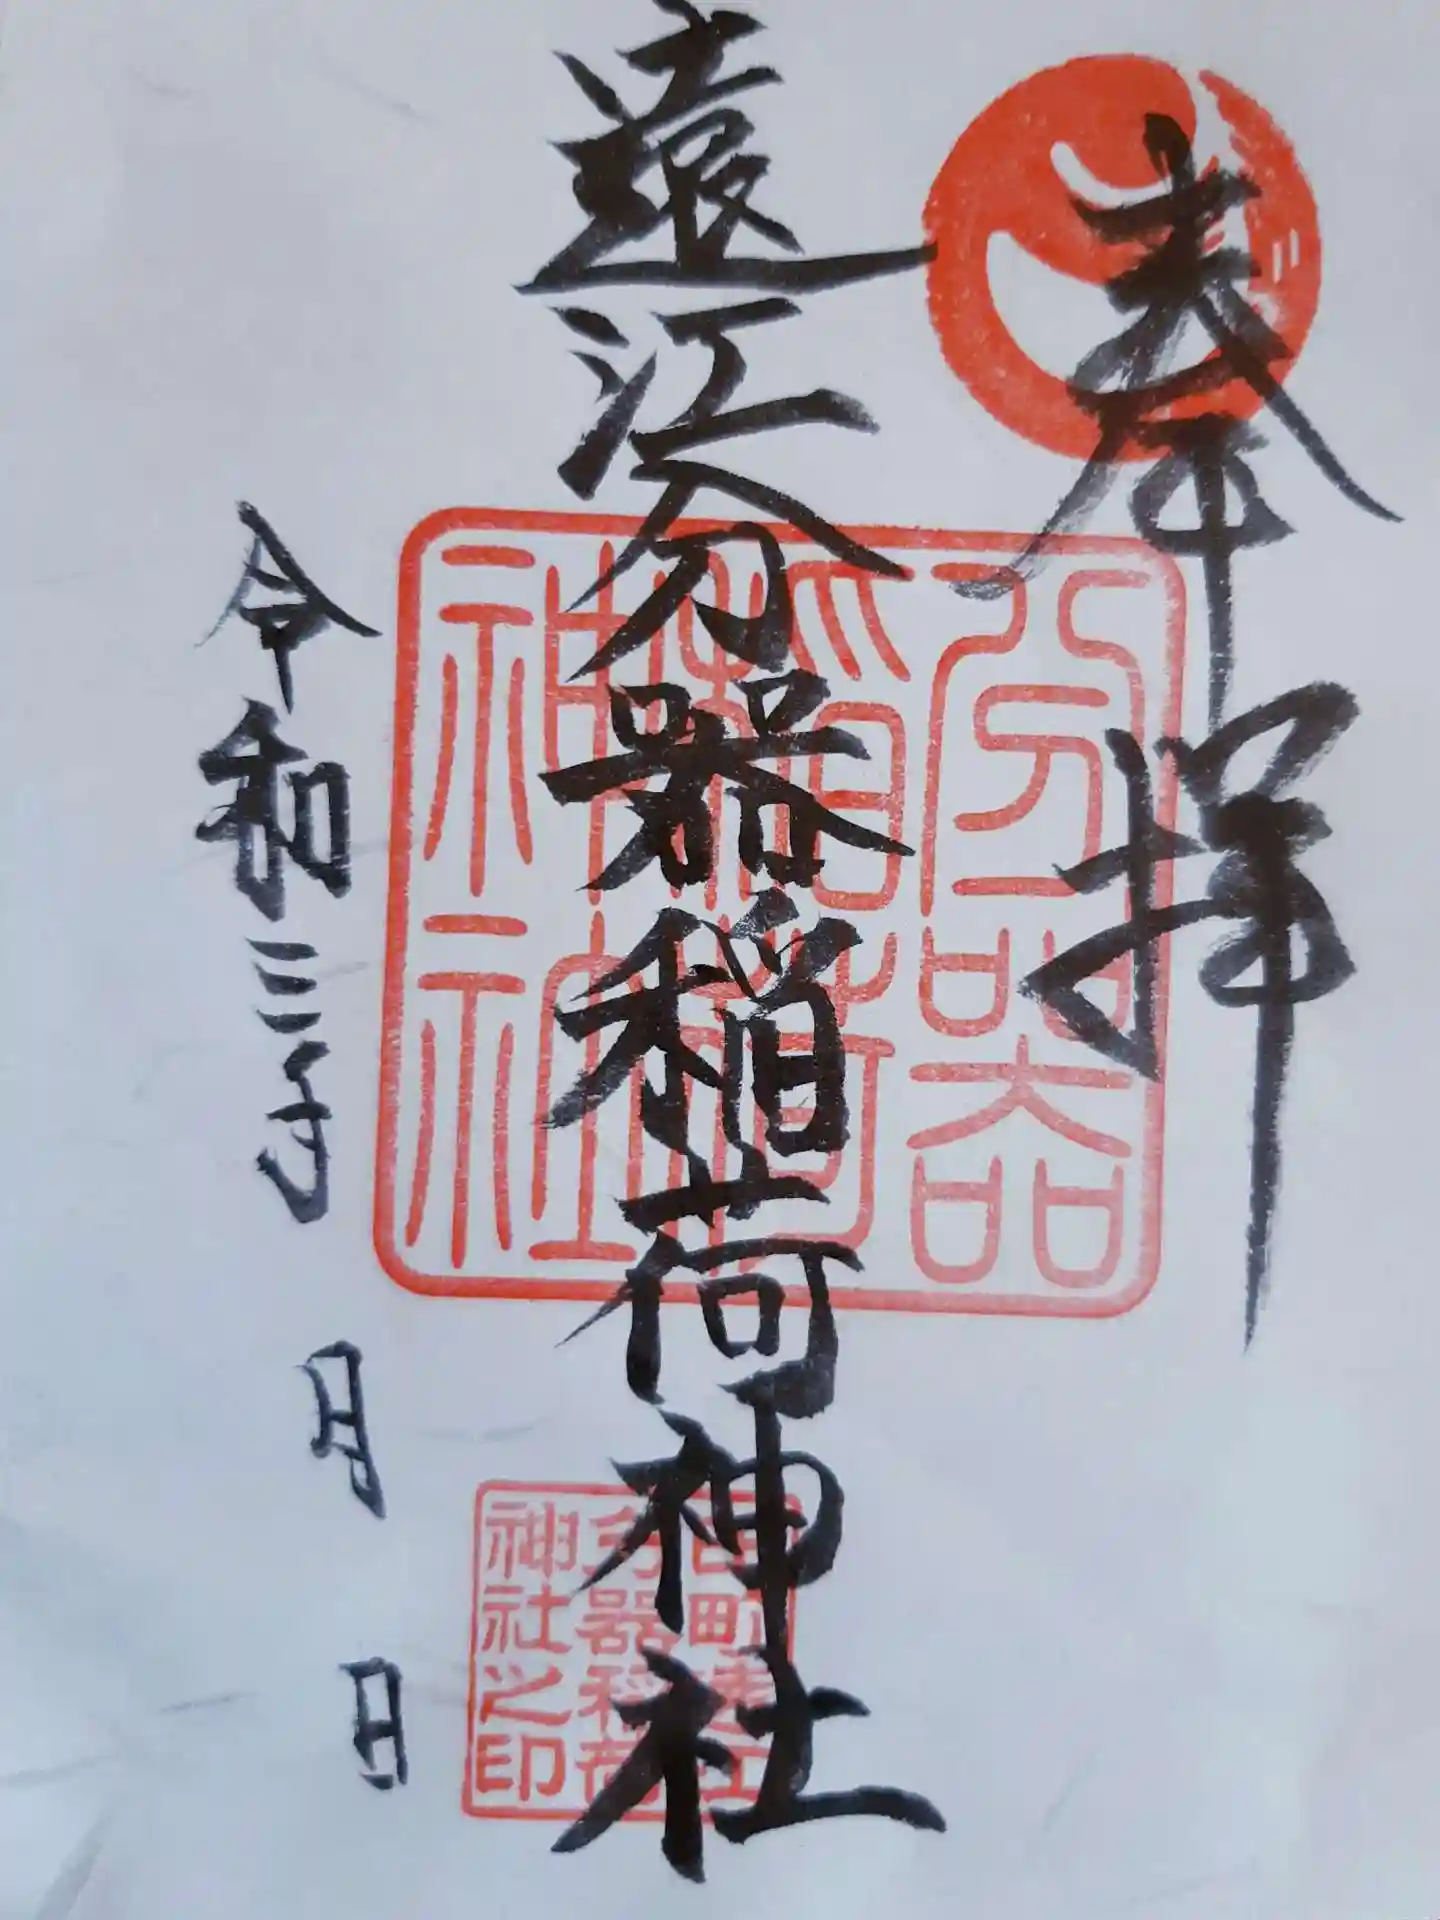 奉拝
遠江分器稲荷神社
令和三年
月
日
分器
稲荷
神社
田町遠江
分器稲荷
神社之印